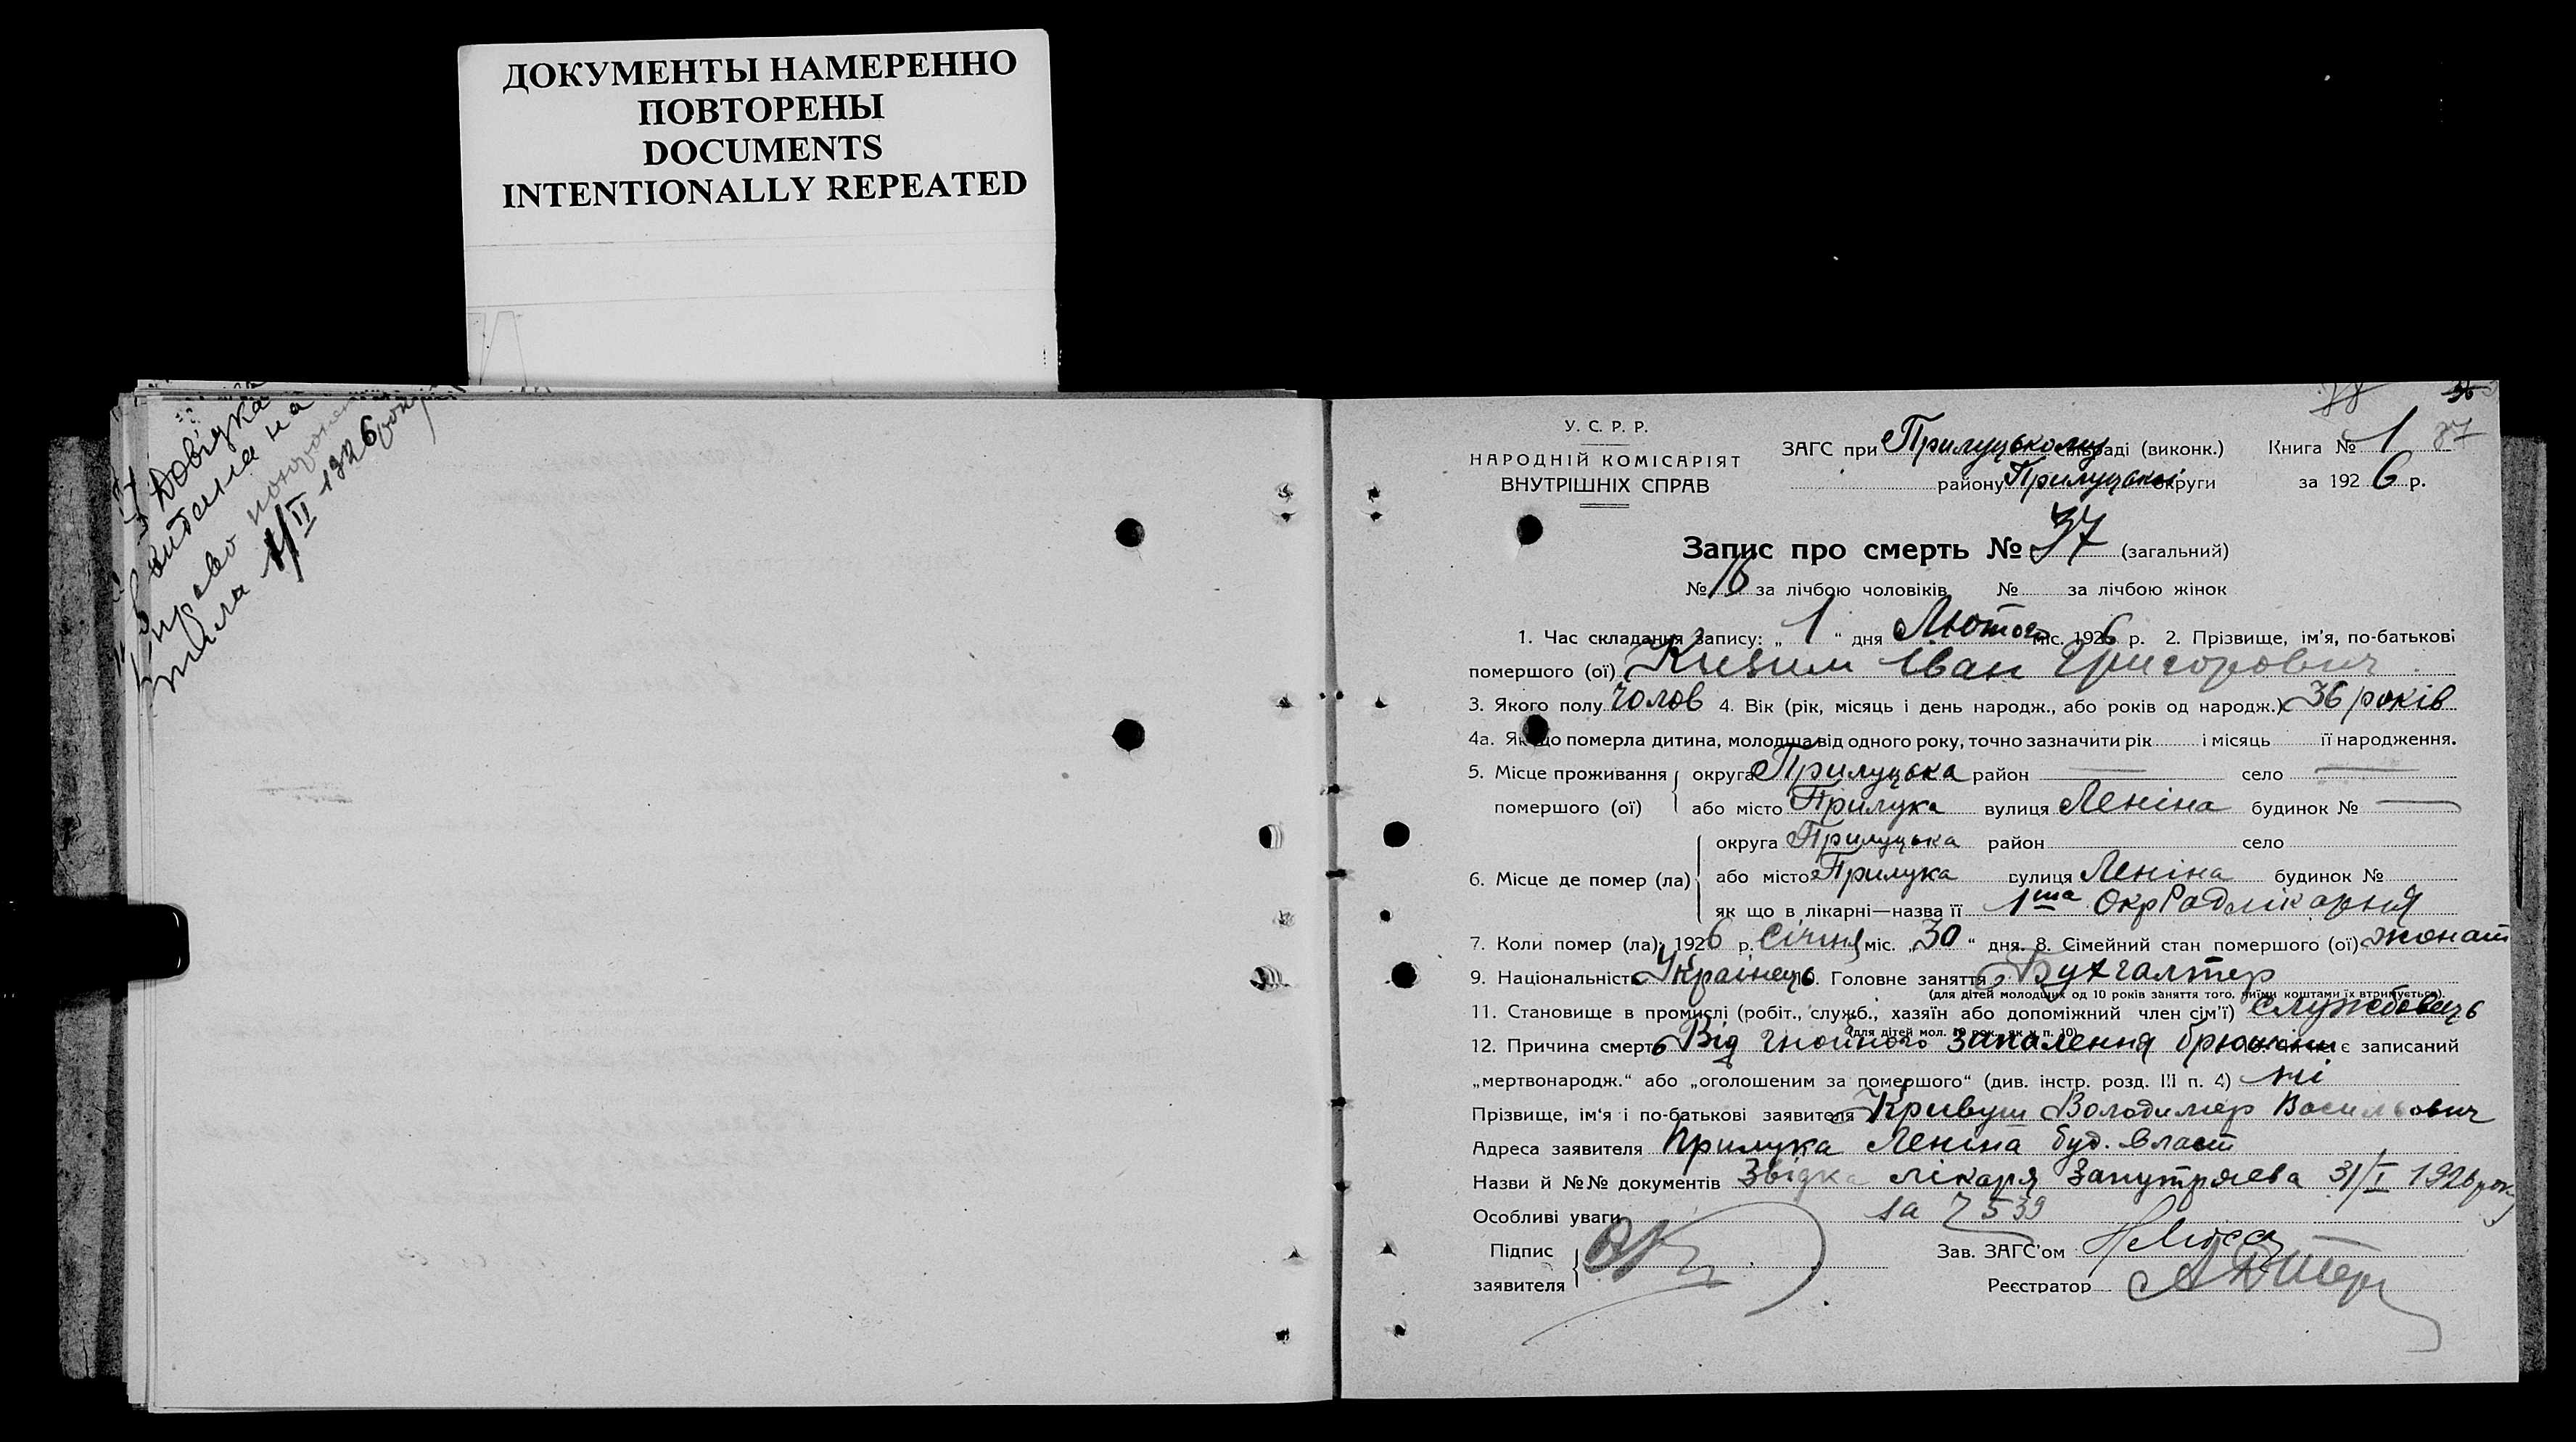 ДОКУМЕНТЫ НАМЕРЕННО
ПОВТОРЕНЫ
DOCUMENTS
INTENTIONALLY REPEATED
Довідка
видана на
право похорон
тіла 1/II 1926 року
У. С. Р. Р.
НАРОДНІЙ КОМІСАРІЯТ
ВНУТРІШНІХ СПРАВ
ЗАГС при Прилуцькому сільраді (виконк.) Книга № 1 87
району Прилуцької округи за 1926 р.
Запис про смерть № 37 (загальний)
№ 16 за лічбою чоловіків № за лічбою жінок
1. Час складання запису: „ 1 “ дня Лютого міс. 1926 р. 2. Прізвище, ім'я, по-батькові
помершого (ої) Кизим Іван Григорович
3. Якого полу чолов 4. Вік (рік, місяць і день народж., або років од народж.) 36 років
4а. Якщо померла дитина, молодша від одного року, точно зазначити рік і місяць її народження.
5. Місце проживання округа Прилуцька район — село —
помершого (ої) або місто Прилука вулиця Леніна будинок № —
округа Прилуцька район село
6. Місце де помер (ла) або місто Прилука вулиця Леніна будинок №
як що в лікарні—назва її 1ша ОкрРадлікарня
7. Коли помер (ла) 1926 р. Січня міс. „30“ дня. 8. Сімейний стан помершого (ої) жонат
9. Національність Українець 10. Головне заняття Бухгалтер
(для дітей молодших од 10 років заняття того, чиїми коштами їх втримується).
11. Становище в промислі (робіт., служб., хазяїн або допоміжний член сім'ї) Службовець
(для дітей мол. 10 рок. як у п. 10)
12. Причина смерть Від гнойного запалення брюшіни є записаний
„мертвонародж.“ або „оголошеним за помершого“ (див. інстр. розд. III п. 4) ні
Прізвище, ім'я і по-батькові заявителя Кривуш Володимер Васильович
Адреса заявителя Прилука Леніна буд. власт
Назви й №№ документів Звідка лікаря 31/I 1926 року
Особливі уваги за 7539
Підпис
заявителя
Зав. ЗАГС'ом
Реєстратор